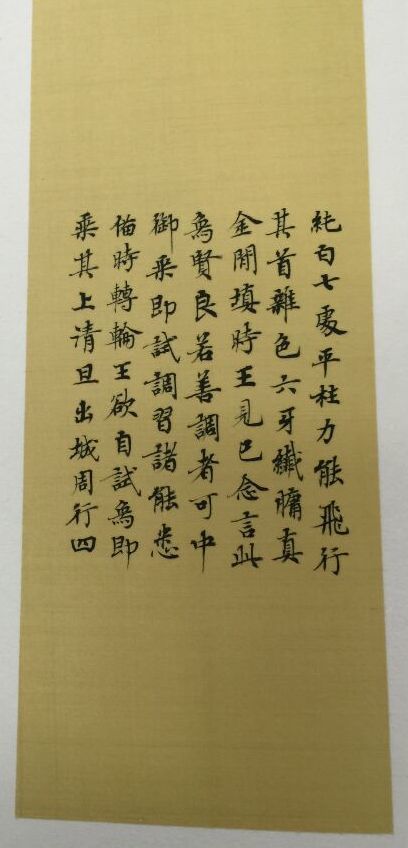 純白七處平柱力能飛行
其首雜色六牙纖𦟛真
金間填時王見已念言此
象賢良若善調者可中
御乘即試調習諸能悉
備時轉輪王欲自試象即
乘其上清旦出城周行四